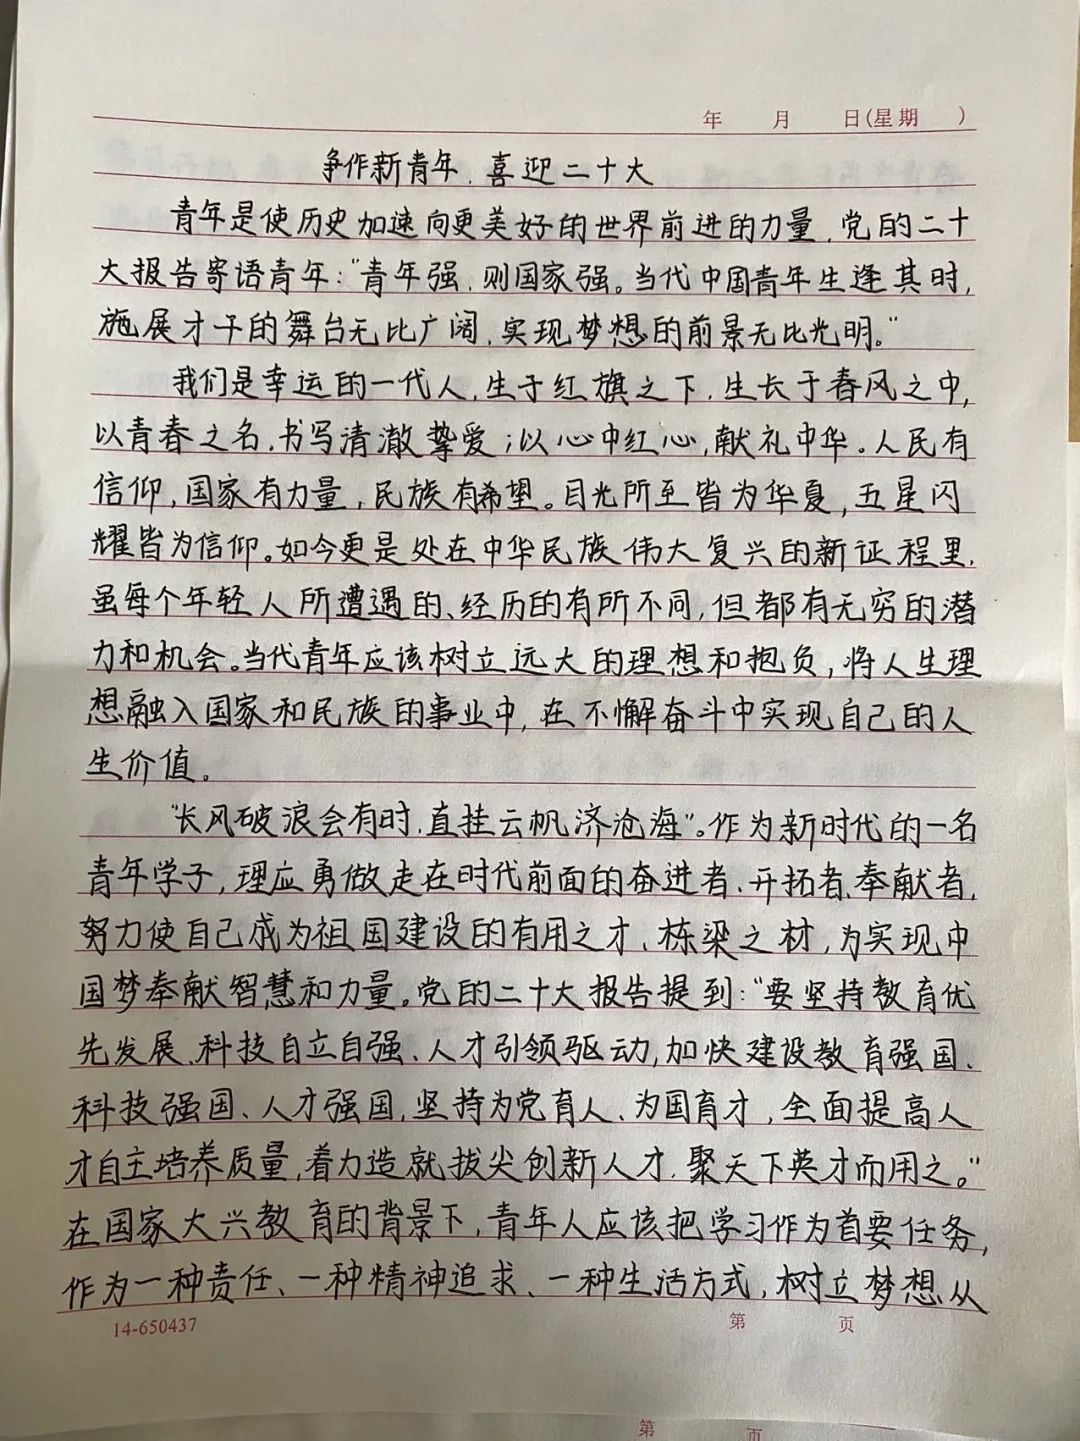 年 月 日(星期 )
争作新青年,喜迎二十大
青年是使历史加速向更美好的世界前进的力量,党的二十
大报告寄语青年:“青年强,则国家强。当代中国青年生逢其时,
施展才干的舞台无比广阔,实现梦想的前景无比光明。”
我们是幸运的一代人,生于红旗之下,生长于春风之中,
以青春之名,书写清澈挚爱;以心中红心,献礼中华。人民有
信仰,国家有力量,民族有希望。目光所至皆为华夏,五星闪
耀皆为信仰。如今更是处在中华民族伟大复兴的新征程里,
虽每个年轻人所遭遇的、经历的有所不同,但都有无穷的潜
力和机会。当代青年应该树立远大的理想和抱负,将人生理
想融入国家和民族的事业中,在不懈奋斗中实现自己的人
生价值。
“长风破浪会有时,直挂云帆济沧海”。作为新时代的一名
青年学子,理应勇做走在时代前面的奋进者、开拓者、奉献者,
努力使自己成为祖国建设的有用之才、栋梁之材,为实现中
国梦奉献智慧和力量。党的二十大报告提到:“要坚持教育优
先发展、科技自立自强、人才引领驱动,加快建设教育强国、
科技强国、人才强国,坚持为党育人、为国育才,全面提高人
才自主培养质量,着力造就拔尖创新人才,聚天下英才而用之。”
在国家大兴教育的背景下,青年人应该把学习作为首要任务,
作为一种责任、一种精神追求、一种生活方式,树立梦想从
14-650437 第 页
第 页